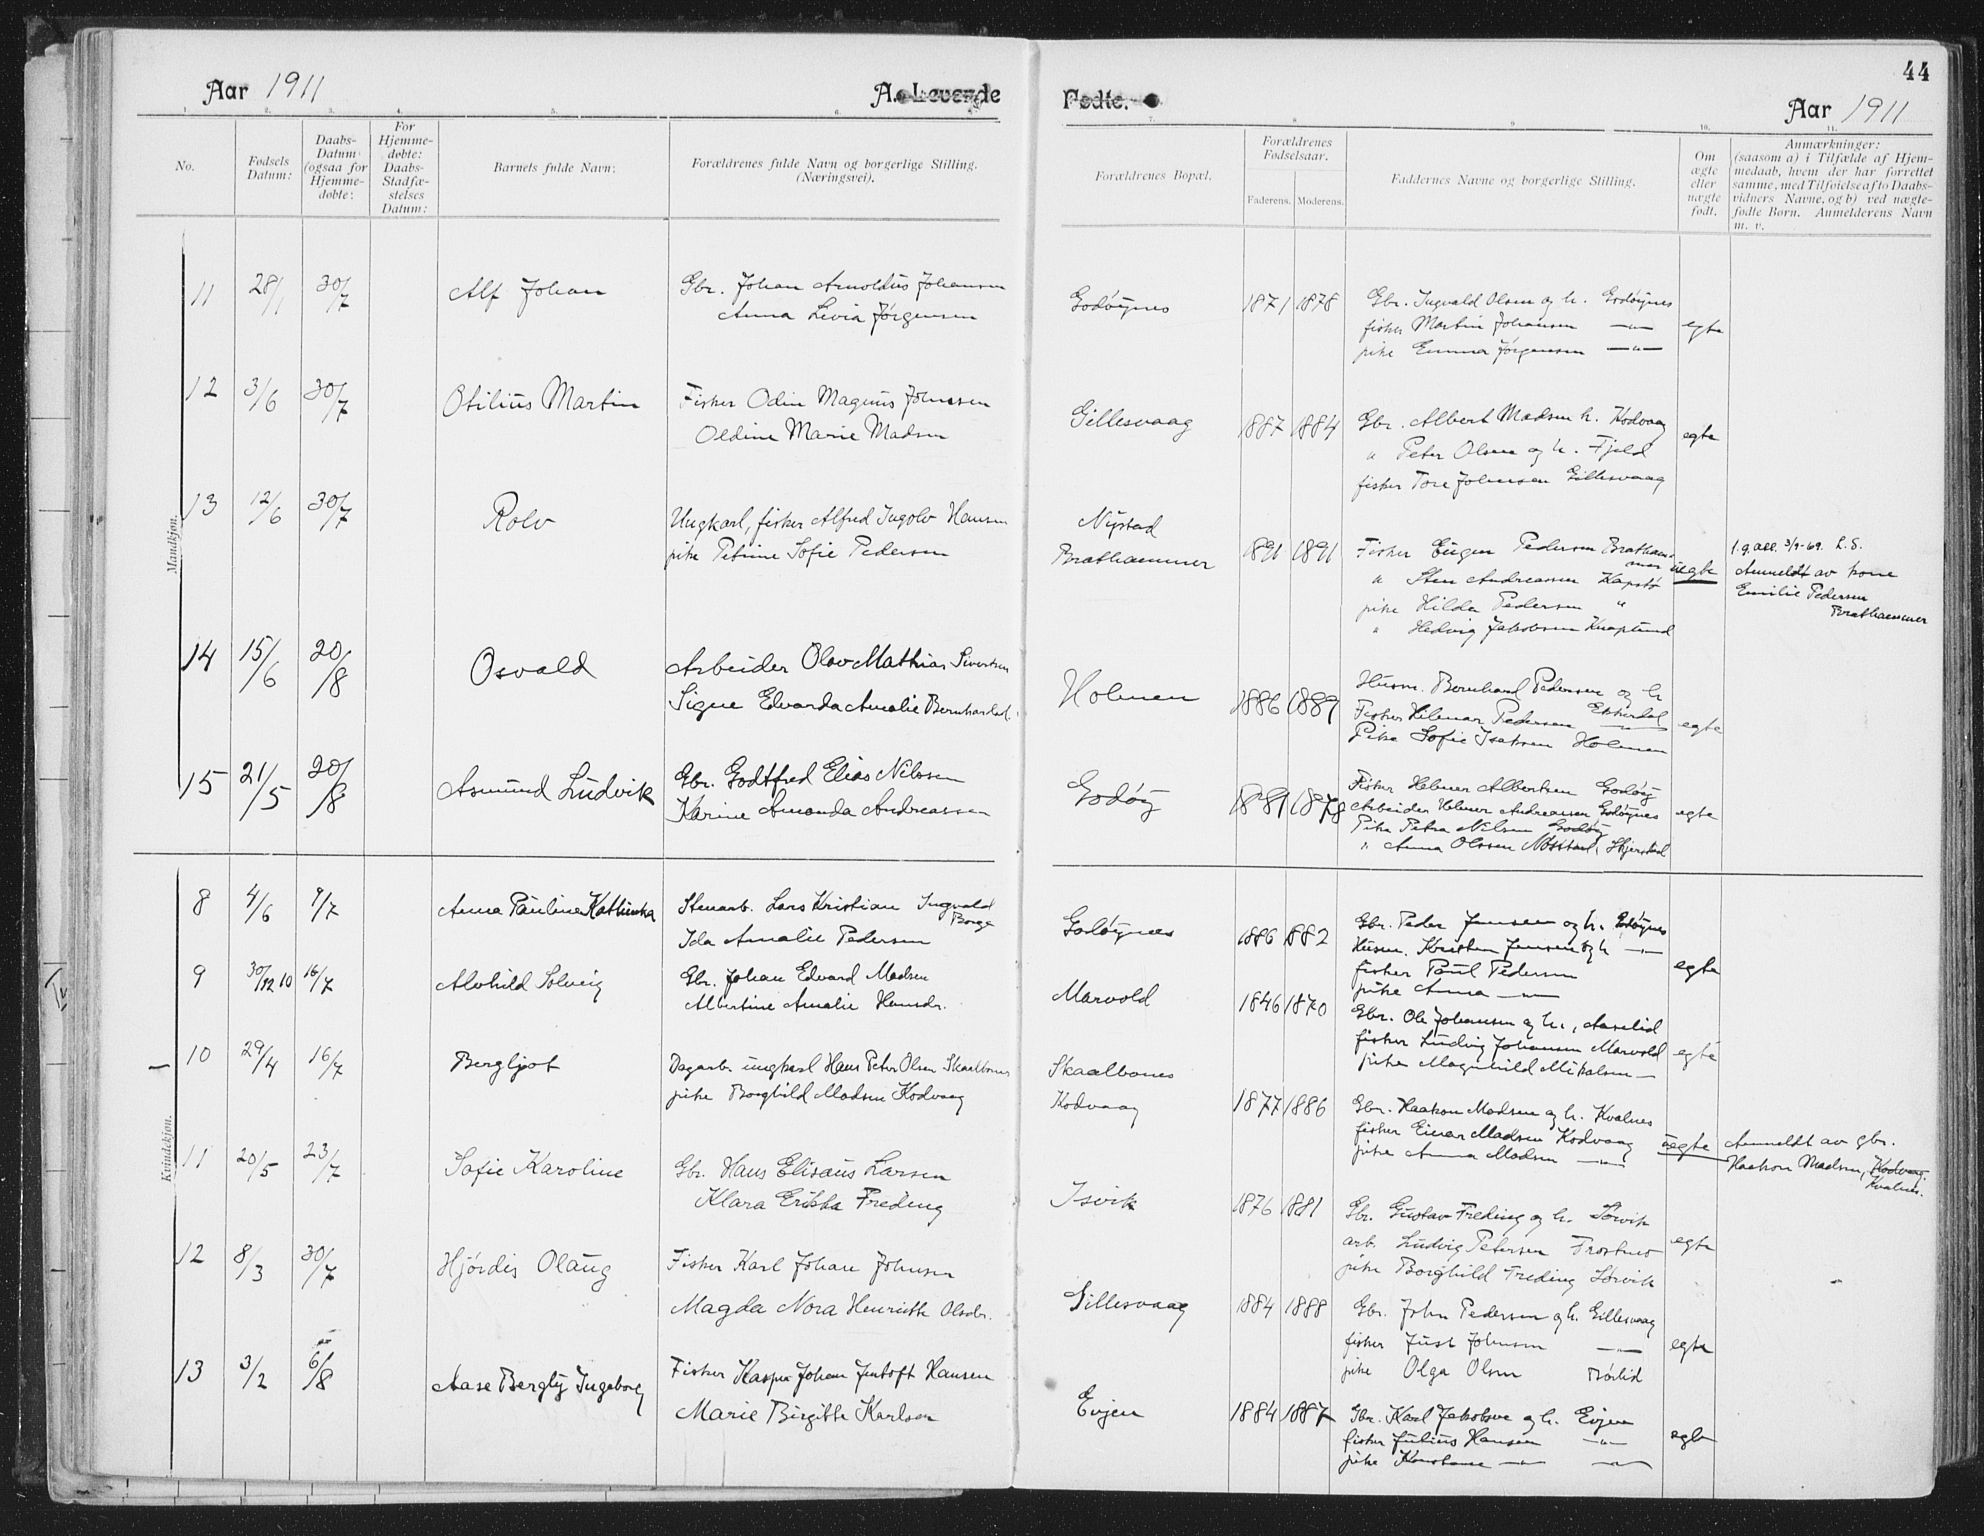 44
Aar 1911
A. Levende
Fødte.
Aar 1911
1. 2. 3. 4. 5. 6. 7. 8. 9. 10. 11.
No.
Fødsels Datum:
Daabs-Datum (ogsaa for Hjemme-døbte:
For Hjemme-døbte: Daabs-Stadfæ-stelses Datum:
Barnets fulde Navn:
Forældrenes fulde Navn og borgerlige Stilling. (Næringsvei).
Forældrenes Bopæl.
Forældrenes Fødselsaar.
Faderens. Moderens.
Faddernes Navne og borgerlige Stilling.
Om ægte eller uægte født.
Anmærkninger: (saasom a) i Tilfælde af Hjem-medaab, hvem der har forrettet samme, med Tilføielse af to Daabs-vidners Navne, og b) ved uægte-fødte Børn. Anmelderens Navn m. v.
Mandkjøn.
11 28/1 30/7 Alf Johan
Gbr. Johan Arnoldus Johansen
Anna Livia Jørgensen
Godøynes 1871 1878
Gbr. Ingvald Olsen og h. Godøynes
fisker Martin Johansen —"—
pike Emma Jørgensen —"—
egte
12 3/6 30/7 Otilius Martin
Fisker Odin Magnus Johnsen
Oldine Marie Madsen
Gillesvaag 1887 1884
Gbr. Albert Madsen h. Kodvaag
" Peter Olsen og h. Fjeld
fisker Tore Johnsen Gillesvaag
egte
13 12/6 30/7 Rolv
Ungkarl, fisker Alfred Ingolv Hansen
pike Petrine Sofie Pedersen
Nystad
Brathammer 1891 1891
Fisker Eugen Pedersen Bratham-
mer
" Sten Andreassen Kapstø
pike Hilda Pedersen "
" Hedvig Jakobsen Knaplund
uegte
f.g.att. 3/9-69. L.S.
Anmeldt av kone
Emilie Pedersen
Brathammer
14 15/6 20/8 Osvald
Arbeider Olav Mathias Sivertsen
Signe Edvarda Amalie Bernhardsd.
Holmen 1886 1889
Husm. Bernhard Pedersen og h
Fisker Hilmar Pedersen
Pike Sofie Isaksen Holmen
egte
15 21/5 20/8 Asmund Ludvik
Gbr. Godtfred Elias Nilssen
Karine Amanda Andreassen
Godøy 1881 1878
Fisker Helmer Albertsen Godøy
Arbeider Helmer Andreassen Godøynes
Pike Petra Nilsen Godøy
" Anna Olssen Hjerstad
egte
Kvindekjøn.
8 4/6 9/7 Anna Pauline Kathinka
Stenarb. Lars Kristian Ingvald
Borge
Ida Amalie Pedersen
Godøynes 1886 1882
Gbr. Peder Jensen og h. Godøynes
Husm. Kristen Jensen og h —"—
fisker Paul Pedersen
pike Anna —"—
egte
9 30/12 10 16/7 Alvhild Solveig
Gbr. Johan Edvard Madsen
Albertine Amalie Hansdr.
Marvold 1846 1870
Gbr. Ole Johansen og h., Aaselid
fisker Ludvig Johansen Marvold
pike Magnhild Mikalsen —
egte
10 29/4 16/7 Bergljot
Dagarb. ungkarl Hans Peter Olsen Skaalbones
pike Borghild Madsen Kodvaag
Skaalbones
Kodvaag 1877 1886
Gbr. Haakon Madsen og h. Kvalnes
fisker Einar Madsen Kodvaag
pike Anna Madsen —"—
uegte
Anmeldt av gbr.
Haakon Madsen, Kodvaag
Kvalnes.
11 20/5 23/7 Sofie Karoline
Gbr. Hans Elisæus Larsen
Klara Erikka Freding
Isvik 1876 1881
Gbr. Gustav Freding og h. Sørvik
arb. Ludvig Petersen Frostmo
pike Borghild Freding Sørvik
egte
12 8/3 30/7 Hjørdis Olaug
Fisker Karl Johan Johnsen
Magda Nora Henriette Olsdr.
Gillesvaag 1884 1888
Gbr. John Pedersen og h. Gillesvaag
fisker Just Johnsen —"—
pike Olga Olsen Børlid
egte
13 3/2 6/8 Aase Bergly Ingeborg
Fisker Kasper Johan Jentoft Hansen
Marie Birgitte Karlsen
Evjen 1884 1887
Gbr. Karl Jakobsen og h. Evjen
fisker Julius Hansen —"—
pike Konstanse —"— —"—
egte